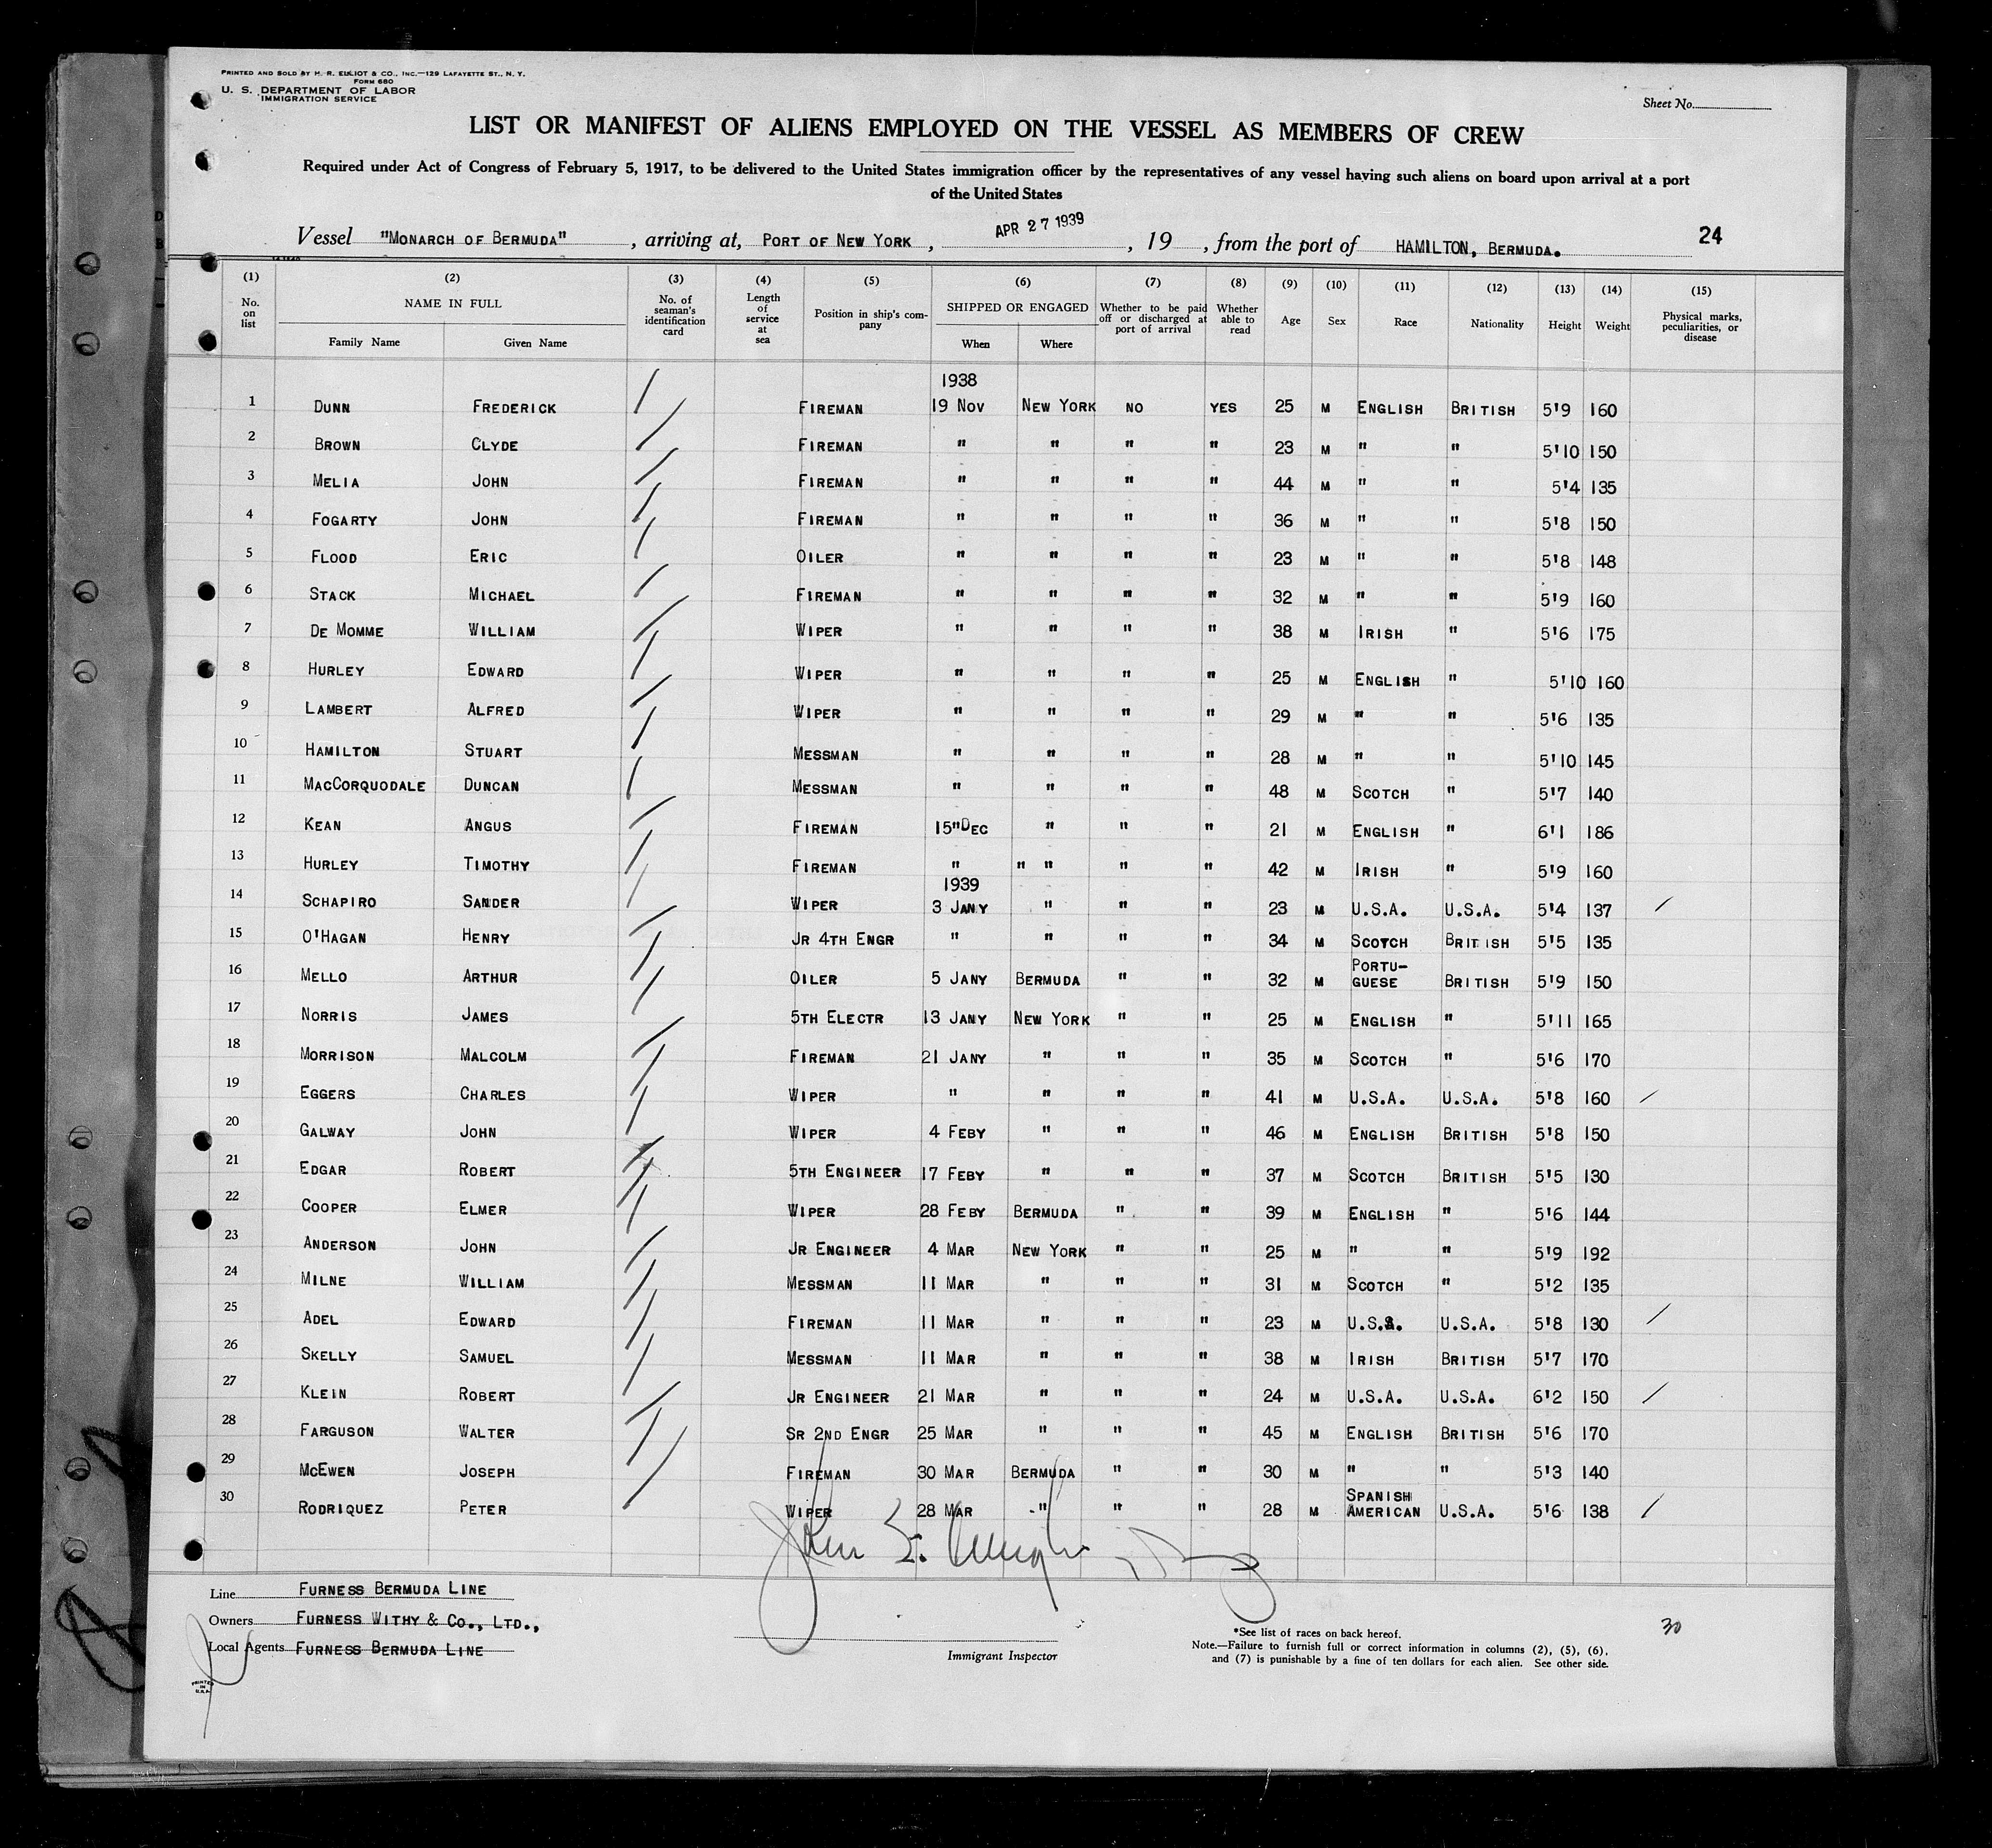 PRINTED AND SOLD BY H. R. ELLIOT & CO., INC.—129 LAFAYETTE ST., N. Y.
FORM 680
U. S. DEPARTMENT OF LABOR
IMMIGRATION SERVICE
Sheet No.
LIST OR MANIFEST OF ALIENS EMPLOYED ON THE VESSEL AS MEMBERS OF CREW
Required under Act of Congress of February 5, 1917, to be delivered to the United States immigration officer by the representatives of any vessel having such aliens on board upon arrival at a port
of the United States
Vessel "MONARCH OF BERMUDA", arriving at, PORT OF NEW YORK, APR 27 1939, 19 , from the port of HAMILTON, BERMUDA. 24
(1) (2) (3) (4) (5) (6) (7) (8) (9) (10) (11) (12) (13) (14) (15)
No. on list NAME IN FULL Family Name Given Name No. of seaman's identification card Length of service at sea Position in ship's company SHIPPED OR ENGAGED When Where Whether to be paid off or discharged at port of arrival Whether able to read Age Sex Race Nationality Height Weight Physical marks, peculiarities, or disease
1938
1 DUNN FREDERICK FIREMAN 19 NOV NEW YORK NO YES 25 M ENGLISH BRITISH 5'9 160
2 BROWN CLYDE FIREMAN " " " " 23 M " " 5'10 150
3 MELIA JOHN FIREMAN " " " " 44 M " " 5'4 135
4 FOGARTY JOHN FIREMAN " " " " 36 M " " 5'8 150
5 FLOOD ERIC OILER " " " " 23 M " " 5'8 148
6 STACK MICHAEL FIREMAN " " " " 32 M " " 5'9 160
7 DE MOMME WILLIAM WIPER " " " " 38 M IRISH " 5'6 175
8 HURLEY EDWARD WIPER " " " " 25 M ENGLISH " 5'10 160
9 LAMBERT ALFRED WIPER " " " " 29 M " " 5'6 135
10 HAMILTON STUART MESSMAN " " " " 28 M " " 5'10 145
11 MACCORQUODALE DUNCAN MESSMAN " " " " 48 M SCOTCH " 5'7 140
12 KEAN ANGUS FIREMAN 15"DEC " " " 21 M ENGLISH " 6'1 186
13 HURLEY TIMOTHY FIREMAN " " " " " 42 M IRISH " 5'9 160
1939
14 SCHAPIRO SANDER WIPER 3 JANY " " " 23 M U.S.A. U.S.A. 5'4 137
15 O'HAGAN HENRY JR 4TH ENGR " " " " 34 M SCOTCH BRITISH 5'5 135
16 MELLO ARTHUR OILER 5 JANY BERMUDA " " 32 M PORTU-GUESE BRITISH 5'9 150
17 NORRIS JAMES 5TH ELECTR 13 JANY NEW YORK " " 25 M ENGLISH " 5'11 165
18 MORRISON MALCOLM FIREMAN 21 JANY " " " 35 M SCOTCH " 5'6 170
19 EGGERS CHARLES WIPER " " " " 41 M U.S.A. U.S.A. 5'8 160
20 GALWAY JOHN WIPER 4 FEBY " " " 46 M ENGLISH BRITISH 5'8 150
21 EDGAR ROBERT 5TH ENGINEER 17 FEBY " " " 37 M SCOTCH BRITISH 5'5 130
22 COOPER ELMER WIPER 28 FEBY BERMUDA " " 39 M ENGLISH " 5'6 144
23 ANDERSON JOHN JR ENGINEER 4 MAR NEW YORK " " 25 M " " 5'9 192
24 MILNE WILLIAM MESSMAN 11 MAR " " " 31 M SCOTCH " 5'2 135
25 ADEL EDWARD FIREMAN 11 MAR " " " 23 M U.S.A. U.S.A. 5'8 130
26 SKELLY SAMUEL MESSMAN 11 MAR " " " 38 M IRISH BRITISH 5'7 170
27 KLEIN ROBERT JR ENGINEER 21 MAR " " " 24 M U.S.A. U.S.A. 6'2 150
28 FARGUSON WALTER SR 2ND ENGR 25 MAR " " " 45 M ENGLISH BRITISH 5'6 170
29 MCEWEN JOSEPH FIREMAN 30 MAR BERMUDA " " 30 M " " 5'3 140
30 RODRIQUEZ PETER WIPER 28 MAR " " " 28 M SPANISH AMERICAN U.S.A. 5'6 138
Line FURNESS BERMUDA LINE
Owners FURNESS WITHY & CO., LTD.,
Local Agents FURNESS BERMUDA LINE
Immigrant Inspector
*See list of races on back hereof.
Note.—Failure to furnish full or correct information in columns (2), (5), (6),
and (7) is punishable by a fine of ten dollars for each alien. See other side.
30
PRINTED
IN
U.S.A.